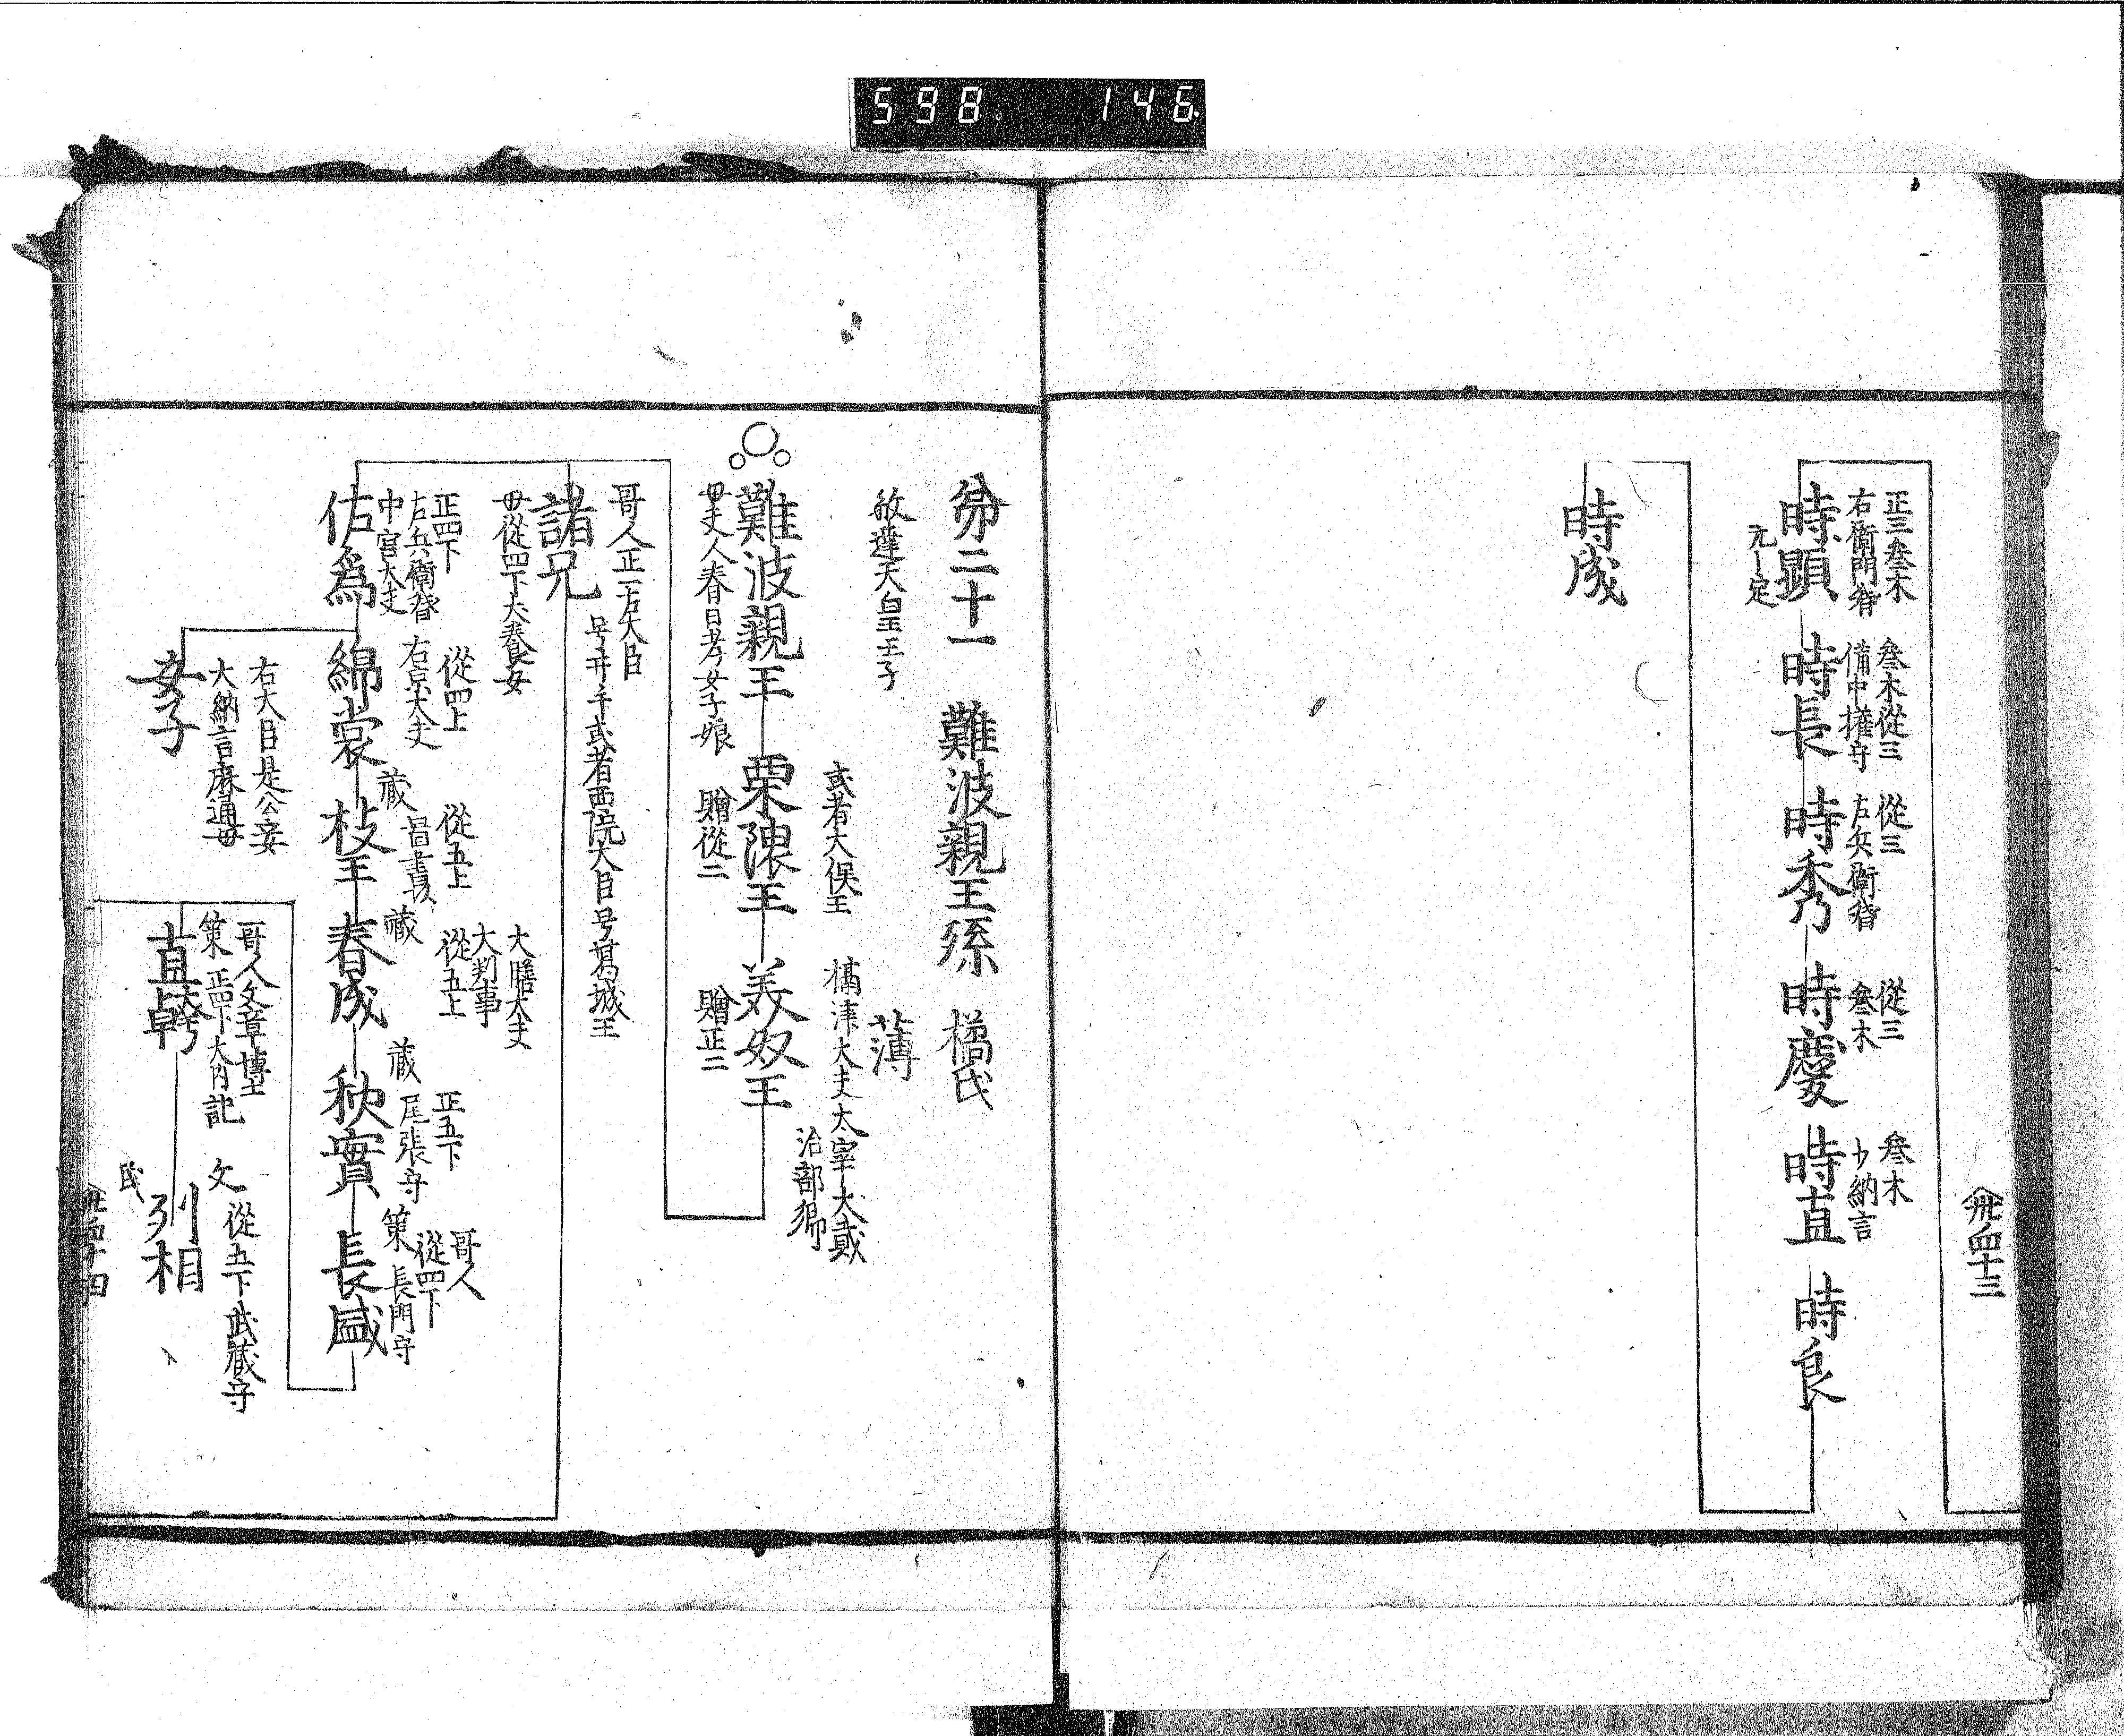 598 146
四十三
正三叅木
右衛門督
時顕
元一定
叅木從三
備中權守
時長
從三
左兵衛督
時秀
從三
叅木
時慶
叅木
少納言
時直
時良
時成
第二十一 難波親王孫 橘氏
薄
敏達天皇王子
難波親王
母夫人春日孝女子娘
或者大俣王
栗隈王
贈從二
橘津大夫太宰大貳
治部卿
美奴王
贈正二
哥人正一左大臣
諸兄
号井手或者西院大臣号葛城王
母從四下犬養女
正四下
左兵衛督
中宮大夫
佐爲
從四上
右京大夫
綿裳
從五上
啚書頭
蔵
枝王
大膳大夫
大判事
從五上
蔵
春成
正五下
尾張守
蔵
秋實
哥人
從四下
長門守
策
長盛
右大臣是公妾
大納言麻通母
女子
哥人文章博士
正四下大内記
策
直幹
文
從五下武蔵守
列相
四十四